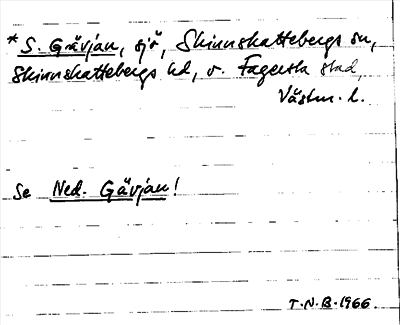 * S. Gävjan, sjö, Skinnskattebergs sn,
Skinnskattebergs hd, o. Fagersta stad,
Västm. l.
Se Ned. Gävjan!
T.N.B. 1966.